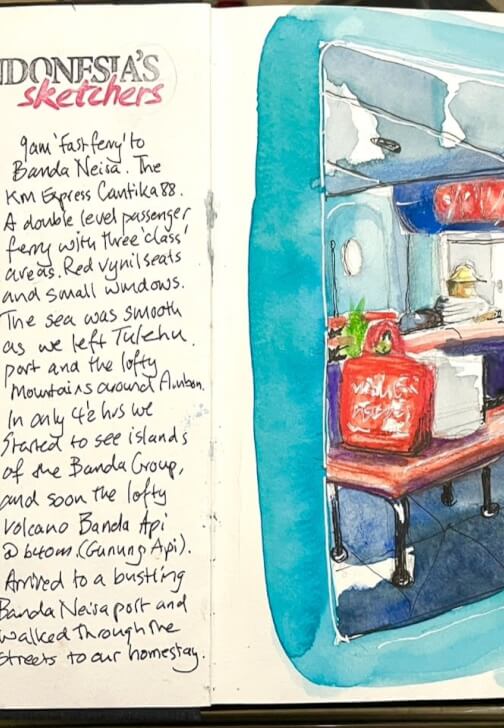 NDONESIA'S
sketchers
9am 'fast ferry' to
Banda Neisa. The
KM Express Cantika 88.
A double level passenger
ferry with three 'class'
areas. Red vynil seats
and small windows.
The sea was smooth
as we left Tulehu
port and the lofty
Mountains around Ambon.
In only 4½ hrs we
Started to see islands
of the Banda Group,
and soon the lofty
volcano Banda Api
@ 640m. (Gunung Api).
Arrived to a bustling
Banda Neisa port and
walked through the
streets to our homestay.